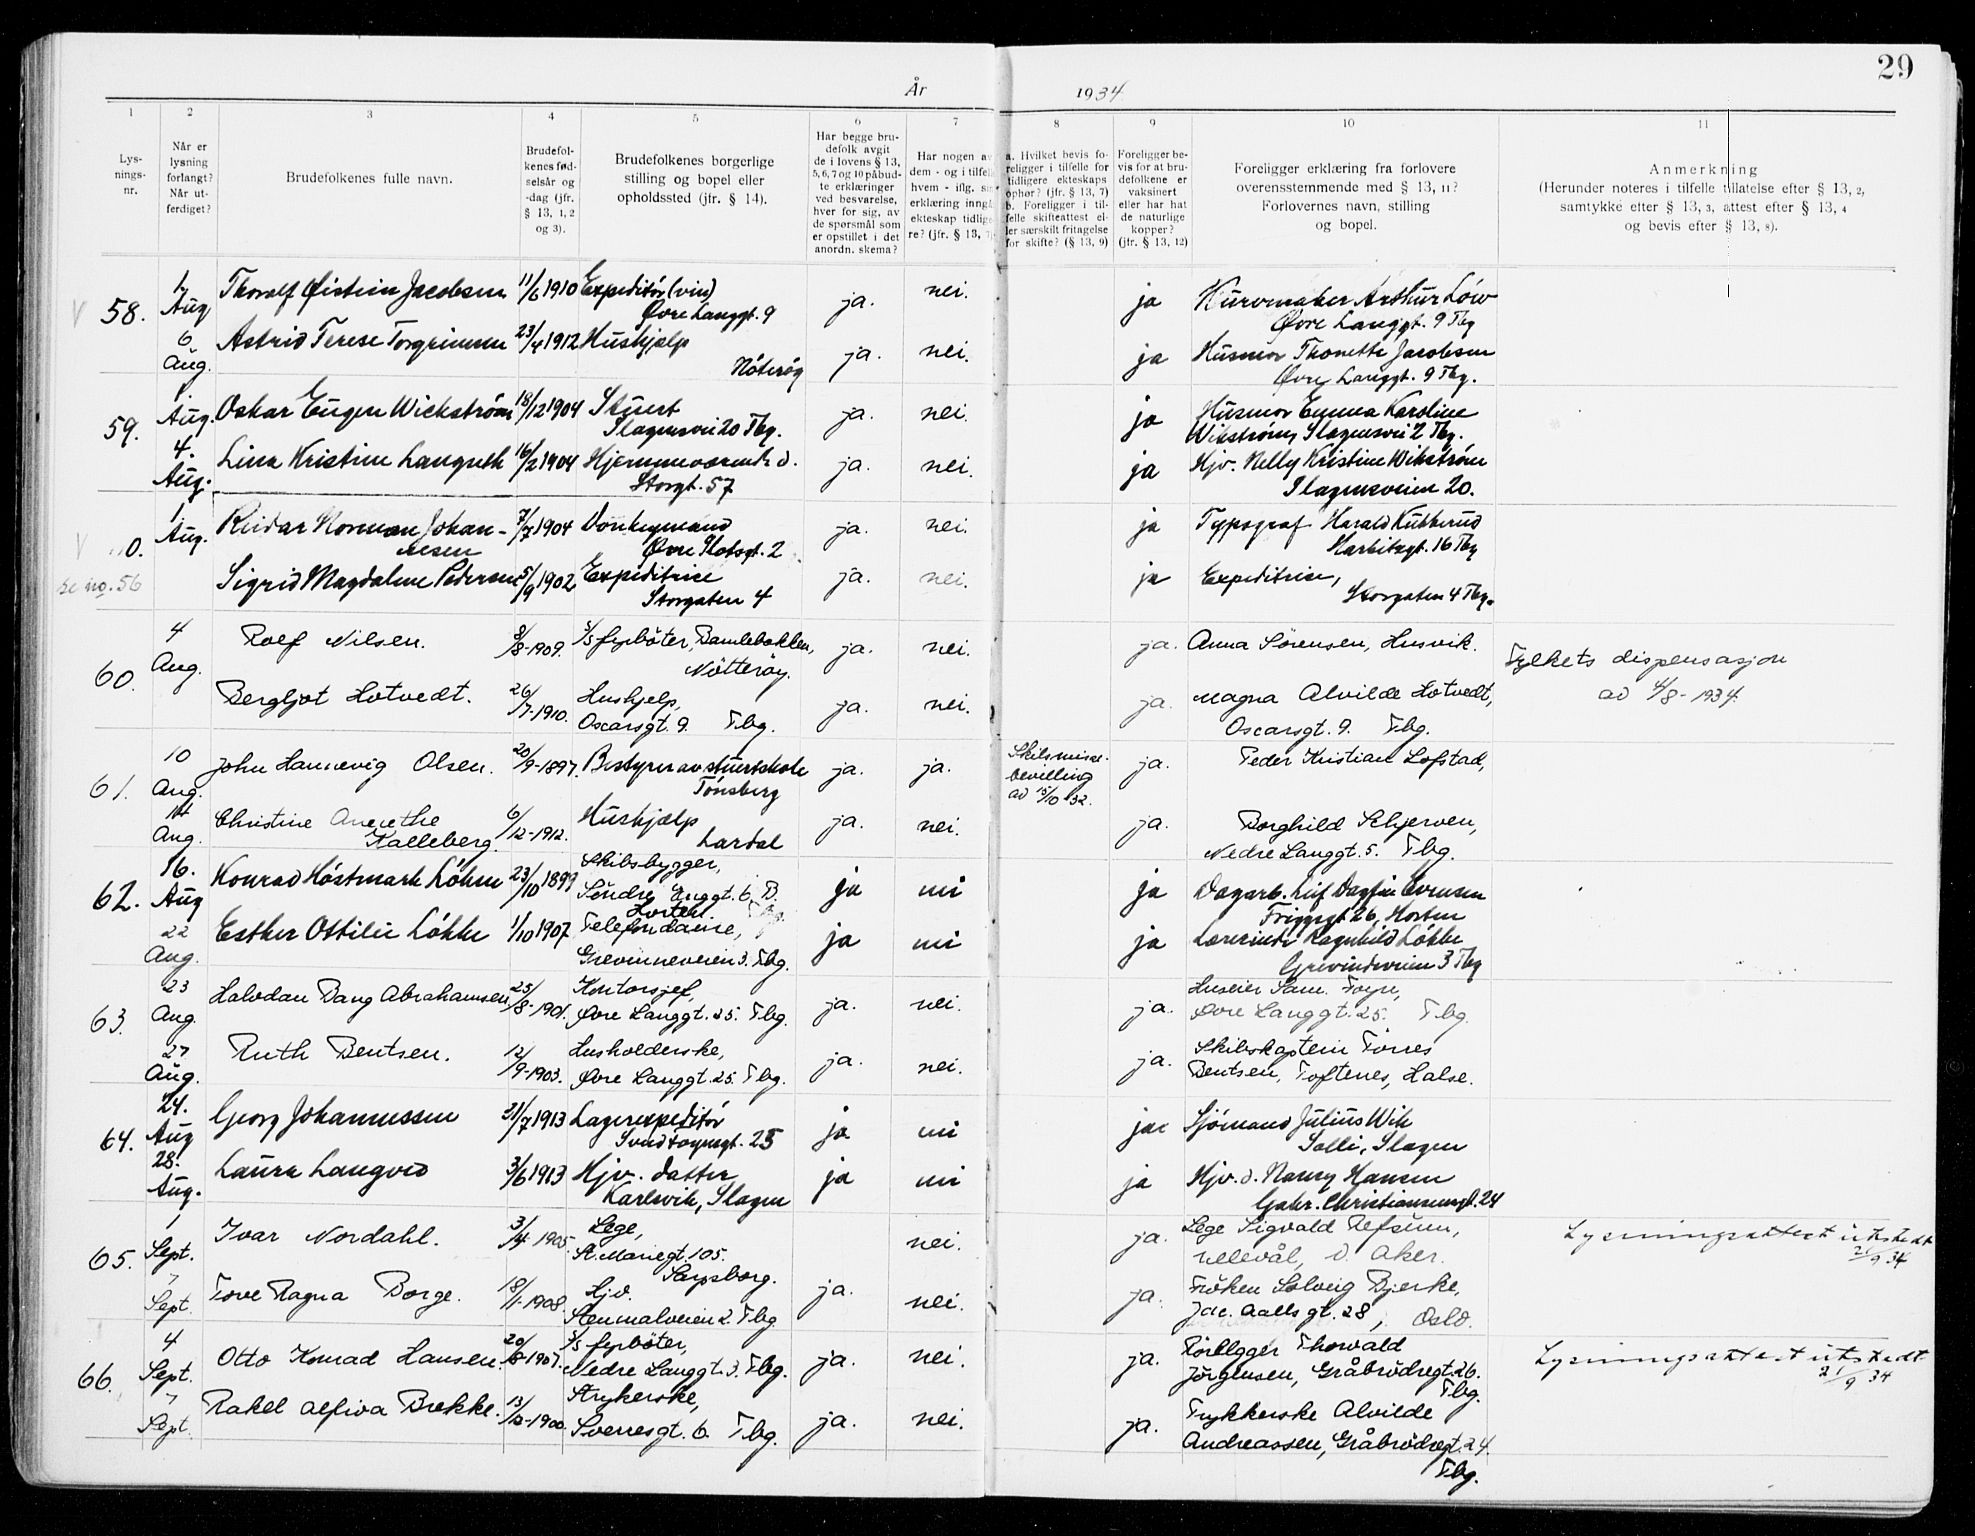 29
År 1934
1 2 3 4 5 6 7 8 9 10 11
Lys-
nings-
nr.
Når er
lysning
forlangt?
Når ut-
ferdiget?
Brudefolkenes fulle navn.
Brudefol-
kenes fød-
selsår og
-dag (jfr.
§ 13, 1, 2
og 3).
Brudefolkenes borgerlige
stilling og bopel eller
opholdssted (jfr. § 14).
Har begge bru-
defolk avgit
de i lovens § 13,
5, 6, 7 og 10 påbud-
te erklæringer
ved besvarelse,
hver for sig, av
de spørsmål som
er opstillet i det
anordn. skema?
Har nogen av
dem - og i tilfelle
hvem - iflg.
erklæring inngå
ekteskap tidlige-
re? (jfr. § 13, 7)
a. Hvilket bevis fo-
religger i tilfelle for
tidligere ekteskaps
ophør? (jfr. § 13, 7)
b. Foreligger i til-
felle skifteattest el-
ler særskilt fritagelse
for skifte? (§ 13, 9)
Foreligger be-
vis for at bru-
defolkene er
vaksinert
eller har hat
de naturlige
kopper?
(jfr. § 13, 12)
Foreligger erklæring fra forlovere
overensstemmende med § 13, 11?
Forlovernes navn, stilling
og bopel.
Anmerkning
(Herunder noteres i tilfelle tillatelse efter § 13, 2,
samtykke efter § 13, 3, attest efter § 13, 4
og bevis efter § 13, 8).
V 58. 1. Aug Thoralf Øistein Jacobsen 11/6 1910 Expeditør (vin) ja. nei. ja Kurvmaker Arthur Löw
Øvre Langgt. 9 Øvre Langgt. 9 Tbg
6 Aug. Astrid Terese Torgrimsen 23/4 1912 Hushjælp ja. nei. ja Husmor Thonette Jacobsen
Nøterøy Øvre Langgt. 9 Tbg.
59. 1. Aug. Oskar Eugen Wickstrøm 18/12 1904 Stuert ja. nei. ja Husmor Emma Karoline
Slagensvei 20 Tbg. Wikstrøm, Slagensvei 2 Tbg.
4. Aug. Lina Kristine Langseth 16/2 1904 Hjemmeværende d. ja. nei. ja Hjv. Nelly Kristine Wikstrøm
Storgt. 57 Slagensveien 20.
V 0. 1. Aug. Reidar Norman Johan- 7/7 1904 Donkeymand ja. nei. ja Typograf Harald Kutterud
nesen Øvre Slotsgt. 2 Harbitzgt. 16 Tbg
se no. 56 Sigrid Magdalene Pedersen 5/9 1902 Expeditrise ja. nei. ja Expeditrise,
Storgaten 4 Storgaten 4 Tbg.
60. 4 Aug. Rolf Nilsen. 8/8-1909. S/s fyrbøter, Ramlebakken, ja. nei. ja. Anna Sørensen, Husvik.
Nøtterøy. Fylkets dispensasjon
av 4/8-1934.
Bergljot Hotvedt. 26/7-1910. Hushjelp, ja. nei. ja. Magna Alvilde Hotvedt,
Oscarsgt. 9. Tbg. Oscarsgt. 9. Tbg.
61. 10 Aug. John Hannevig Olsen. 20/9-1897. Bestyrer av stuertskole ja. ja. Skilsmisse-
bevilling
av 15/10 32. ja. Peder Kristian Lofstad,
Tønsberg
14 Aug. Christine Annethe 6/12-1912. Hushjælp ja. nei. ja. Borghild Schjerven,
Kalleberg. Lardal Nedre Langgt. 5. Tbg.
62. 16. Aug Konrad Høstmark Løhne 23/10 1899 Skibsbygger, ja nei ja Dagarb. Leif Dagfin Evensen
Søndre Enggt. 6. B. Friggsgt 26, Horten
Horten
22 Aug. Esther Ottilie Løkke 1/10 1907 Telefondame, ja nei ja Lærerinde Ragnhild Løkke
Grevinneveien 3. Tbg. Grevindeveien 3 Tbg
63. 23 Aug. Halvdan Bang Abrahamsen 25/8-1901. Kontorsjef, ja. nei. ja. Huseier Sam. Foyn,
Øvre Langgt. 25. Tbg. Øvre Langgt. 25. Tbg.
27 Aug. Ruth Bentsen. 12/9-1903. Husholderske, ja. nei. ja. Skibskaptein Tørres
Øvre Langgt. 25. Tbg. Bentsen, Toftenes, Halse.
64. 24. Aug Georg Johannessen 31/7 1913 Lagerexpeditør ja nei ja Sjømand Julius Wik
Svend Foynsgt. 25 Solli, Slagen
28. Aug. Laura Langvid 3/6 1913 Hjv. datter ja nei ja Hjv. d. Nancy Hansen
Karlsvik, Slagen Gabr. Christiansensgt. 24
65. 1 Sept. Ivar Nordahl. 3/4 1905. Lege, nei. ja. Lege Sigvald Refsum,
St. Mariegt. 105. Ullevål, V. Aker.
Sarpsborg. Lysningsattest utstedt
21/9 34
7 Sept. Tove Ragna Borge. 18/1-1908. Hjv. ja. nei. ja. Frøken Solveig Bjerke,
Stenmalveien 2. Tbg Jac. Aalls gt. 28, Oslo.
66. 4 Sept. Otto Konrad Hansen. 20/8-1907. S/s fyrbøter, ja. nei. ja. Rørlegger Thorvald
Nedre Langgt. 3. Tbg. Jørgensen, Gråbrødregt. 26.
Tbg. Lysningsattest utstedt
21/9 34
7 Sept. Rakel Alfiva Brekke. 13/12-1900. Strykerske, ja. nei. ja. Trykkerske Alvilde
Sverresgt. 6. Tbg. Andreassen, Gråbrødregt. 24.
Tbg.